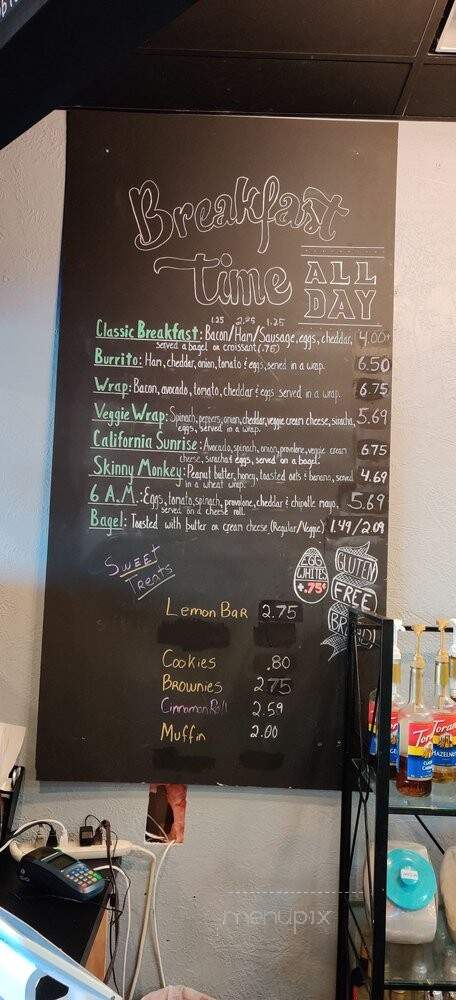 Breakfast
Time ALL
DAY
1.25 2.25 1.25
Classic Breakfast: Bacon/Ham/Sausage, eggs, cheddar, 4.00+
served a bagel or croissant (.75)
Burrito: Ham, cheddar, onion, tomato & eggs, served in a wrap. 6.50
Wrap: Bacon, avocado, tomato, cheddar & eggs served in a wrap. 6.75
Veggie Wrap: Spinach, peppers, onion, cheddar, veggie cream cheese, siracha, 5.69
eggs, served in a wrap.
California Sunrise: Avocado, spinach, onion, provolone, veggie cream 6.75
cheese, siracha & eggs, served on a bagel.
Skinny Monkey: Peanut butter, honey, toasted oats & banana, served 4.69
in a wheat wrap.
6 A.M.: Eggs, tomato, spinach, provolone, cheddar & chipotle mayo, 5.69
served on a cheese roll.
Bagel: Toasted with butter or cream cheese (Regular/Veggie) 1.49/2.09
Sweet
Treats
EGG
WHITES
+.75¢
GLUTEN
FREE
BREAD!
Lemon Bar 2.75
Cookies .80
Brownies 2.75
Cinnamon Roll 2.59
Muffin 2.00
Torani
HAZELNUT
menupix